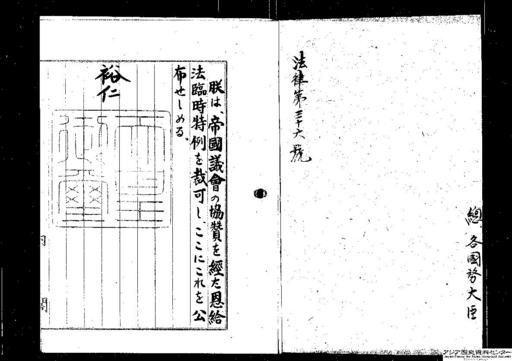 法律第三十六號
總
各國務大臣
朕は、帝國議會の協贊を經た恩給
法臨時特例を裁可し、ここにこれを公
布せしめる。
裕仁
内閣
アジア歴史資料センター